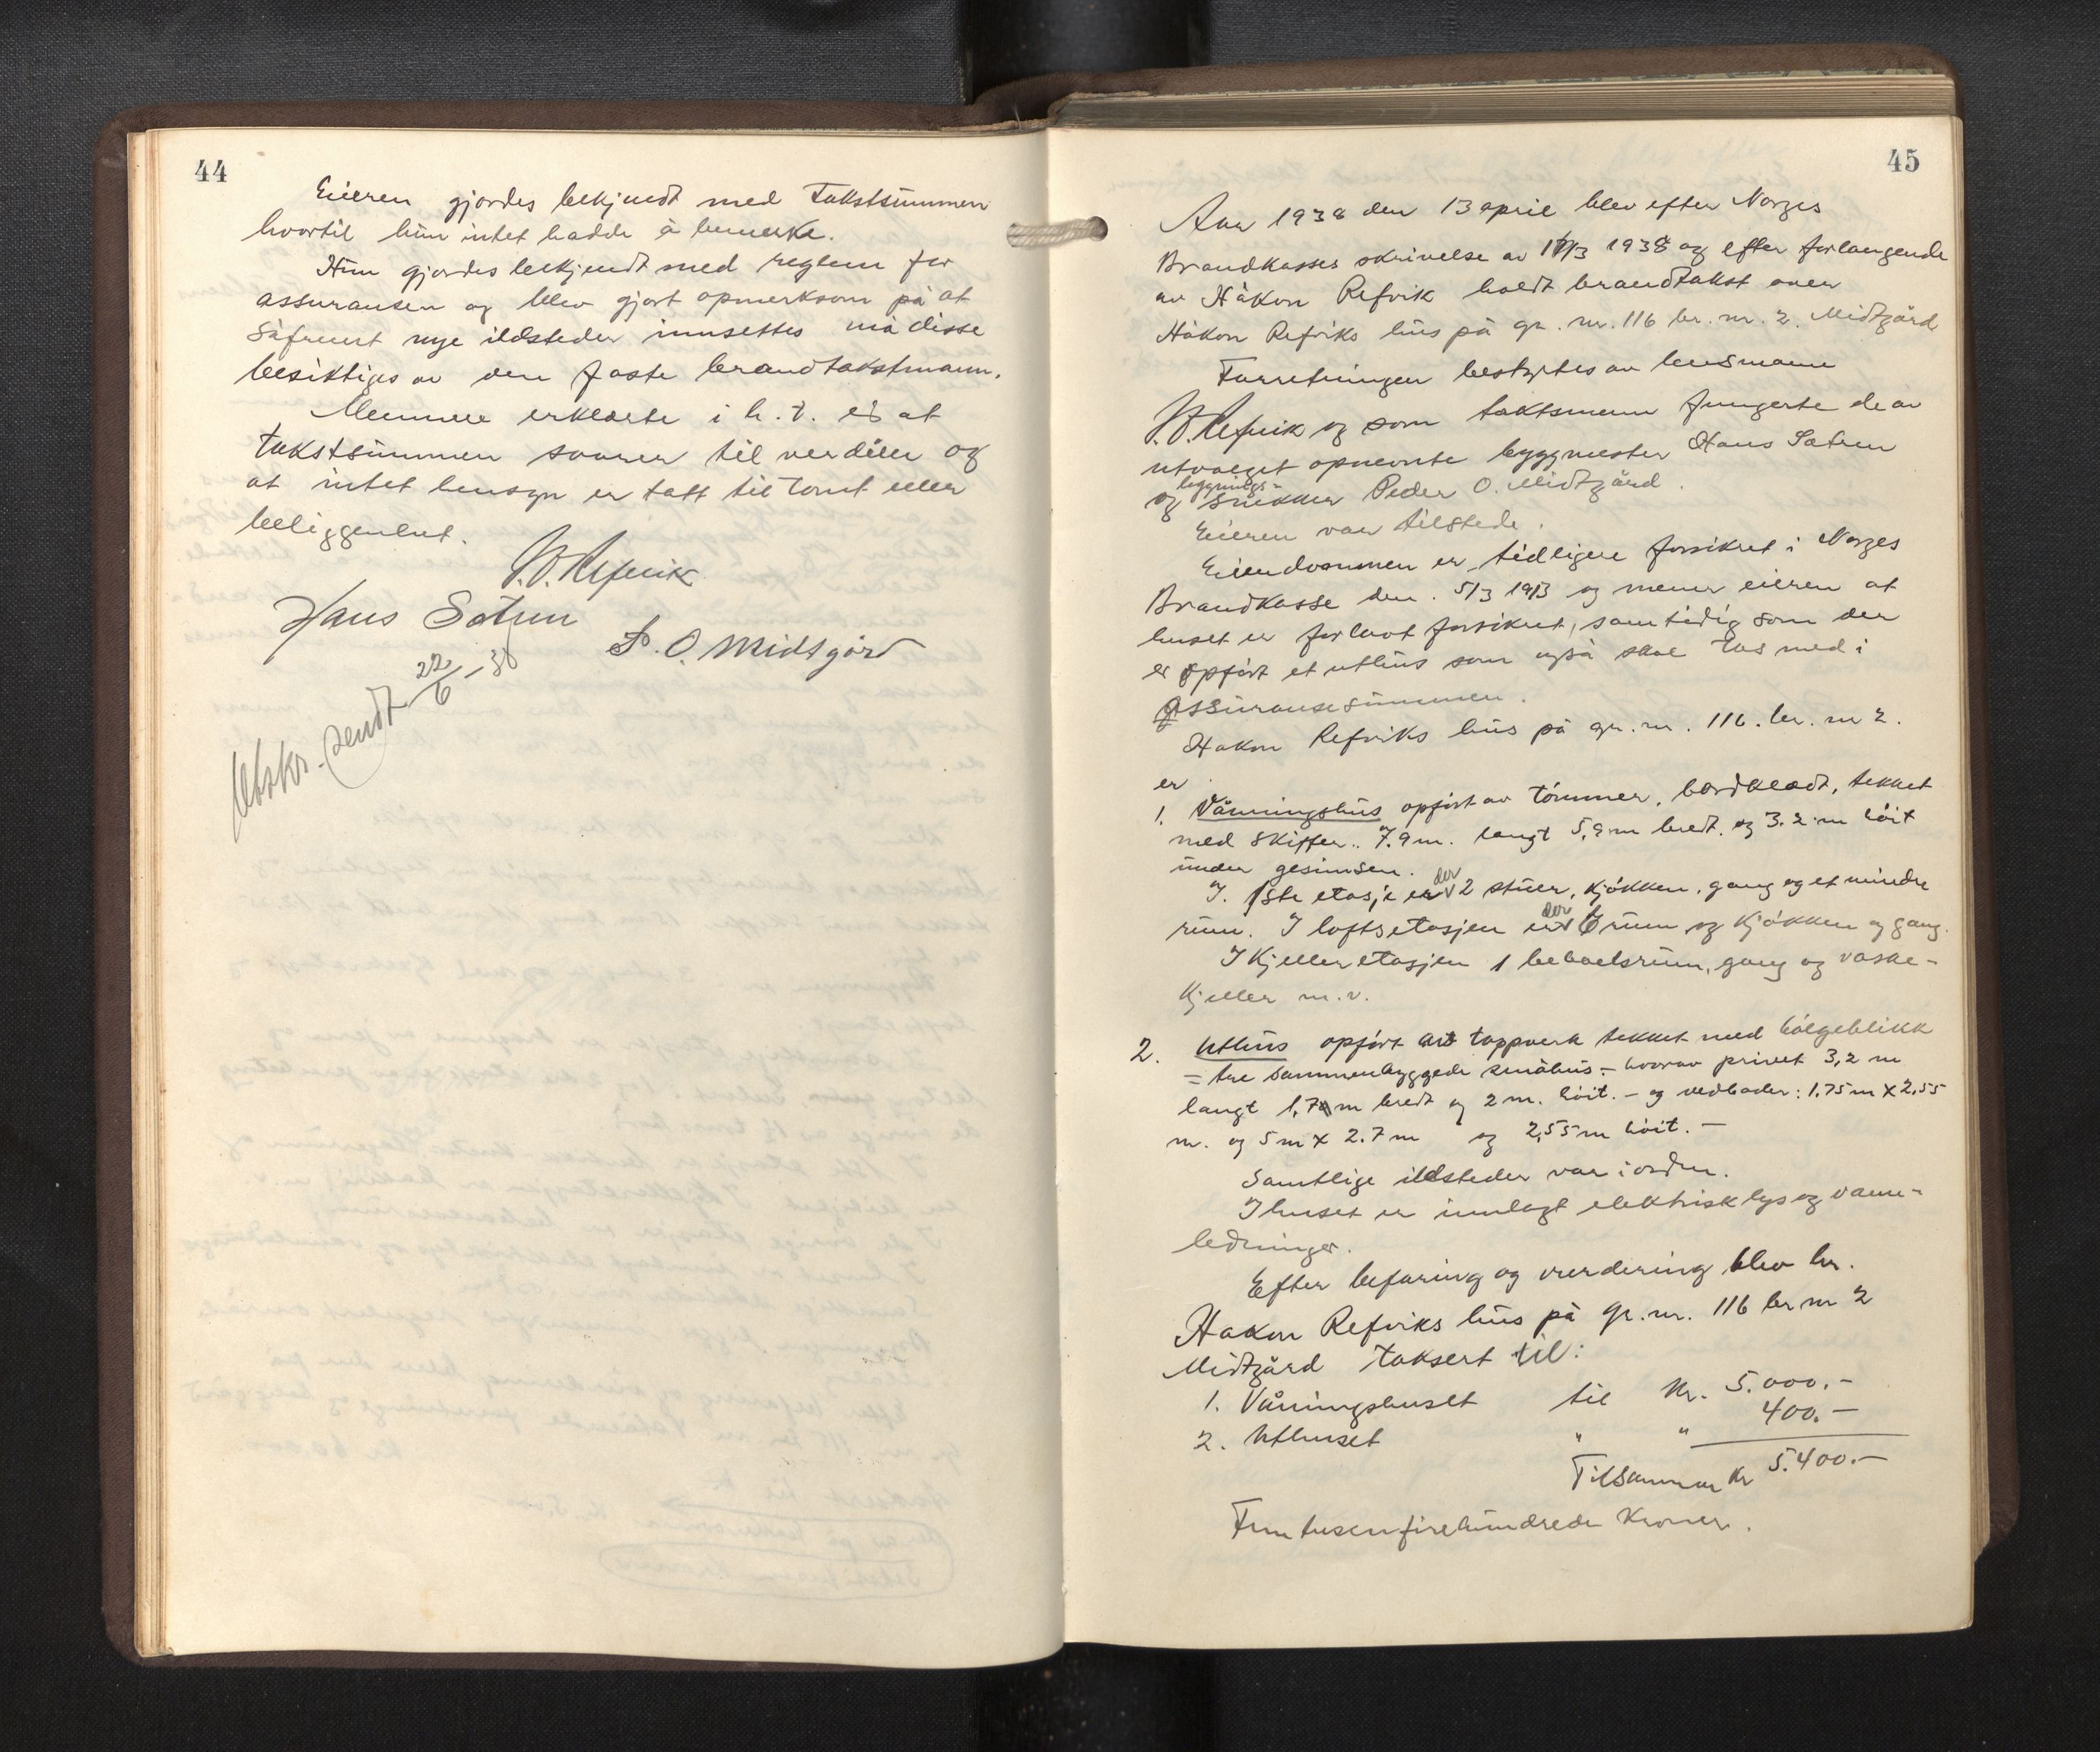 44
Eieren gjordes bekjendt med Takstsummen
hvortil hun intet hadde å bemerke.
Hun gjordes bekjendt med reglene for
assuransen og blev gjort opmerksom på at
såfremt nye ildsteder innsettes må disse
besiktiges av den faste brandtakstmann.
Mennene erklærte i h. t. ed at
takstsummen svarer til verdien og
at intet hensyn er tatt til tomt eller
beliggenhet.
Refvik
Hans Sætren
P. O. Midtgård
Utskr. sendt 22/6 - 38
45
Aar 1938 den 13 april blev efter Norges
Brandkasses skrivelse av 1938 og efter forlangende
av Håkon Refvik holdt brandtakst over
Håkon Refviks hus på gr. nr. 116 br. nr. 2. Midtgård
Forretningen bestyrtes av lensmann
Refvik og som takstmenn fungerte de av
utvalget opnevnte byggmester Hans Sætren
og bygnings-snekker Peder O. Midtgård.
Eieren var tilstede.
Eiendommen er tidligere forsikret i Norges
Brandkasse den. 5/3 1913 og mener eieren at
huset er for lavt forsikret, samtidig som der
er opført et uthus som også skal tas med i
assuransesummen.
Hakon Refviks hus på gr. nr. 116. br. nr 2.
er
1. Våningshus opført av tømmer, bordklædt, tekket
med skiffer.. 7.9 m. langt 5,9 m bredt. og 3.2 m høit
under gesimsen.
I. 1ste etasje er der 2 stuer, kjøkken, gang og et mindre
rum. I loftsetasjen er der rum og kjøkken og gang.
I Kjelleretasjen 1 beboelsrum, gang og vaske-
kjeller m. v.
2. Uthus opført av tappverk tekket med bølgeblikk
= tre sammenbyggede småhus - hvorav privet 3,2 m
langt 1,7 m bredt og 2 m. høit. - og vedboder: 1.75 m x 2,55
m. og 5 m x 2.7 m og 2,55 m høit. -
Samtlige ildsteder var i orden.
I huset er innlagt elektrisk lys og vann-
ledninger.
Efter befaring og vurdering blev hr.
Hakon Refviks hus på gr. nr. 116 br nr 2
Midtgård taksert til:
1. Våningshuset til kr. 5.000.-
2. Uthuset " " 400.-
Tilsammen kr 5.400.-
Femtusenfirehundrede kroner.